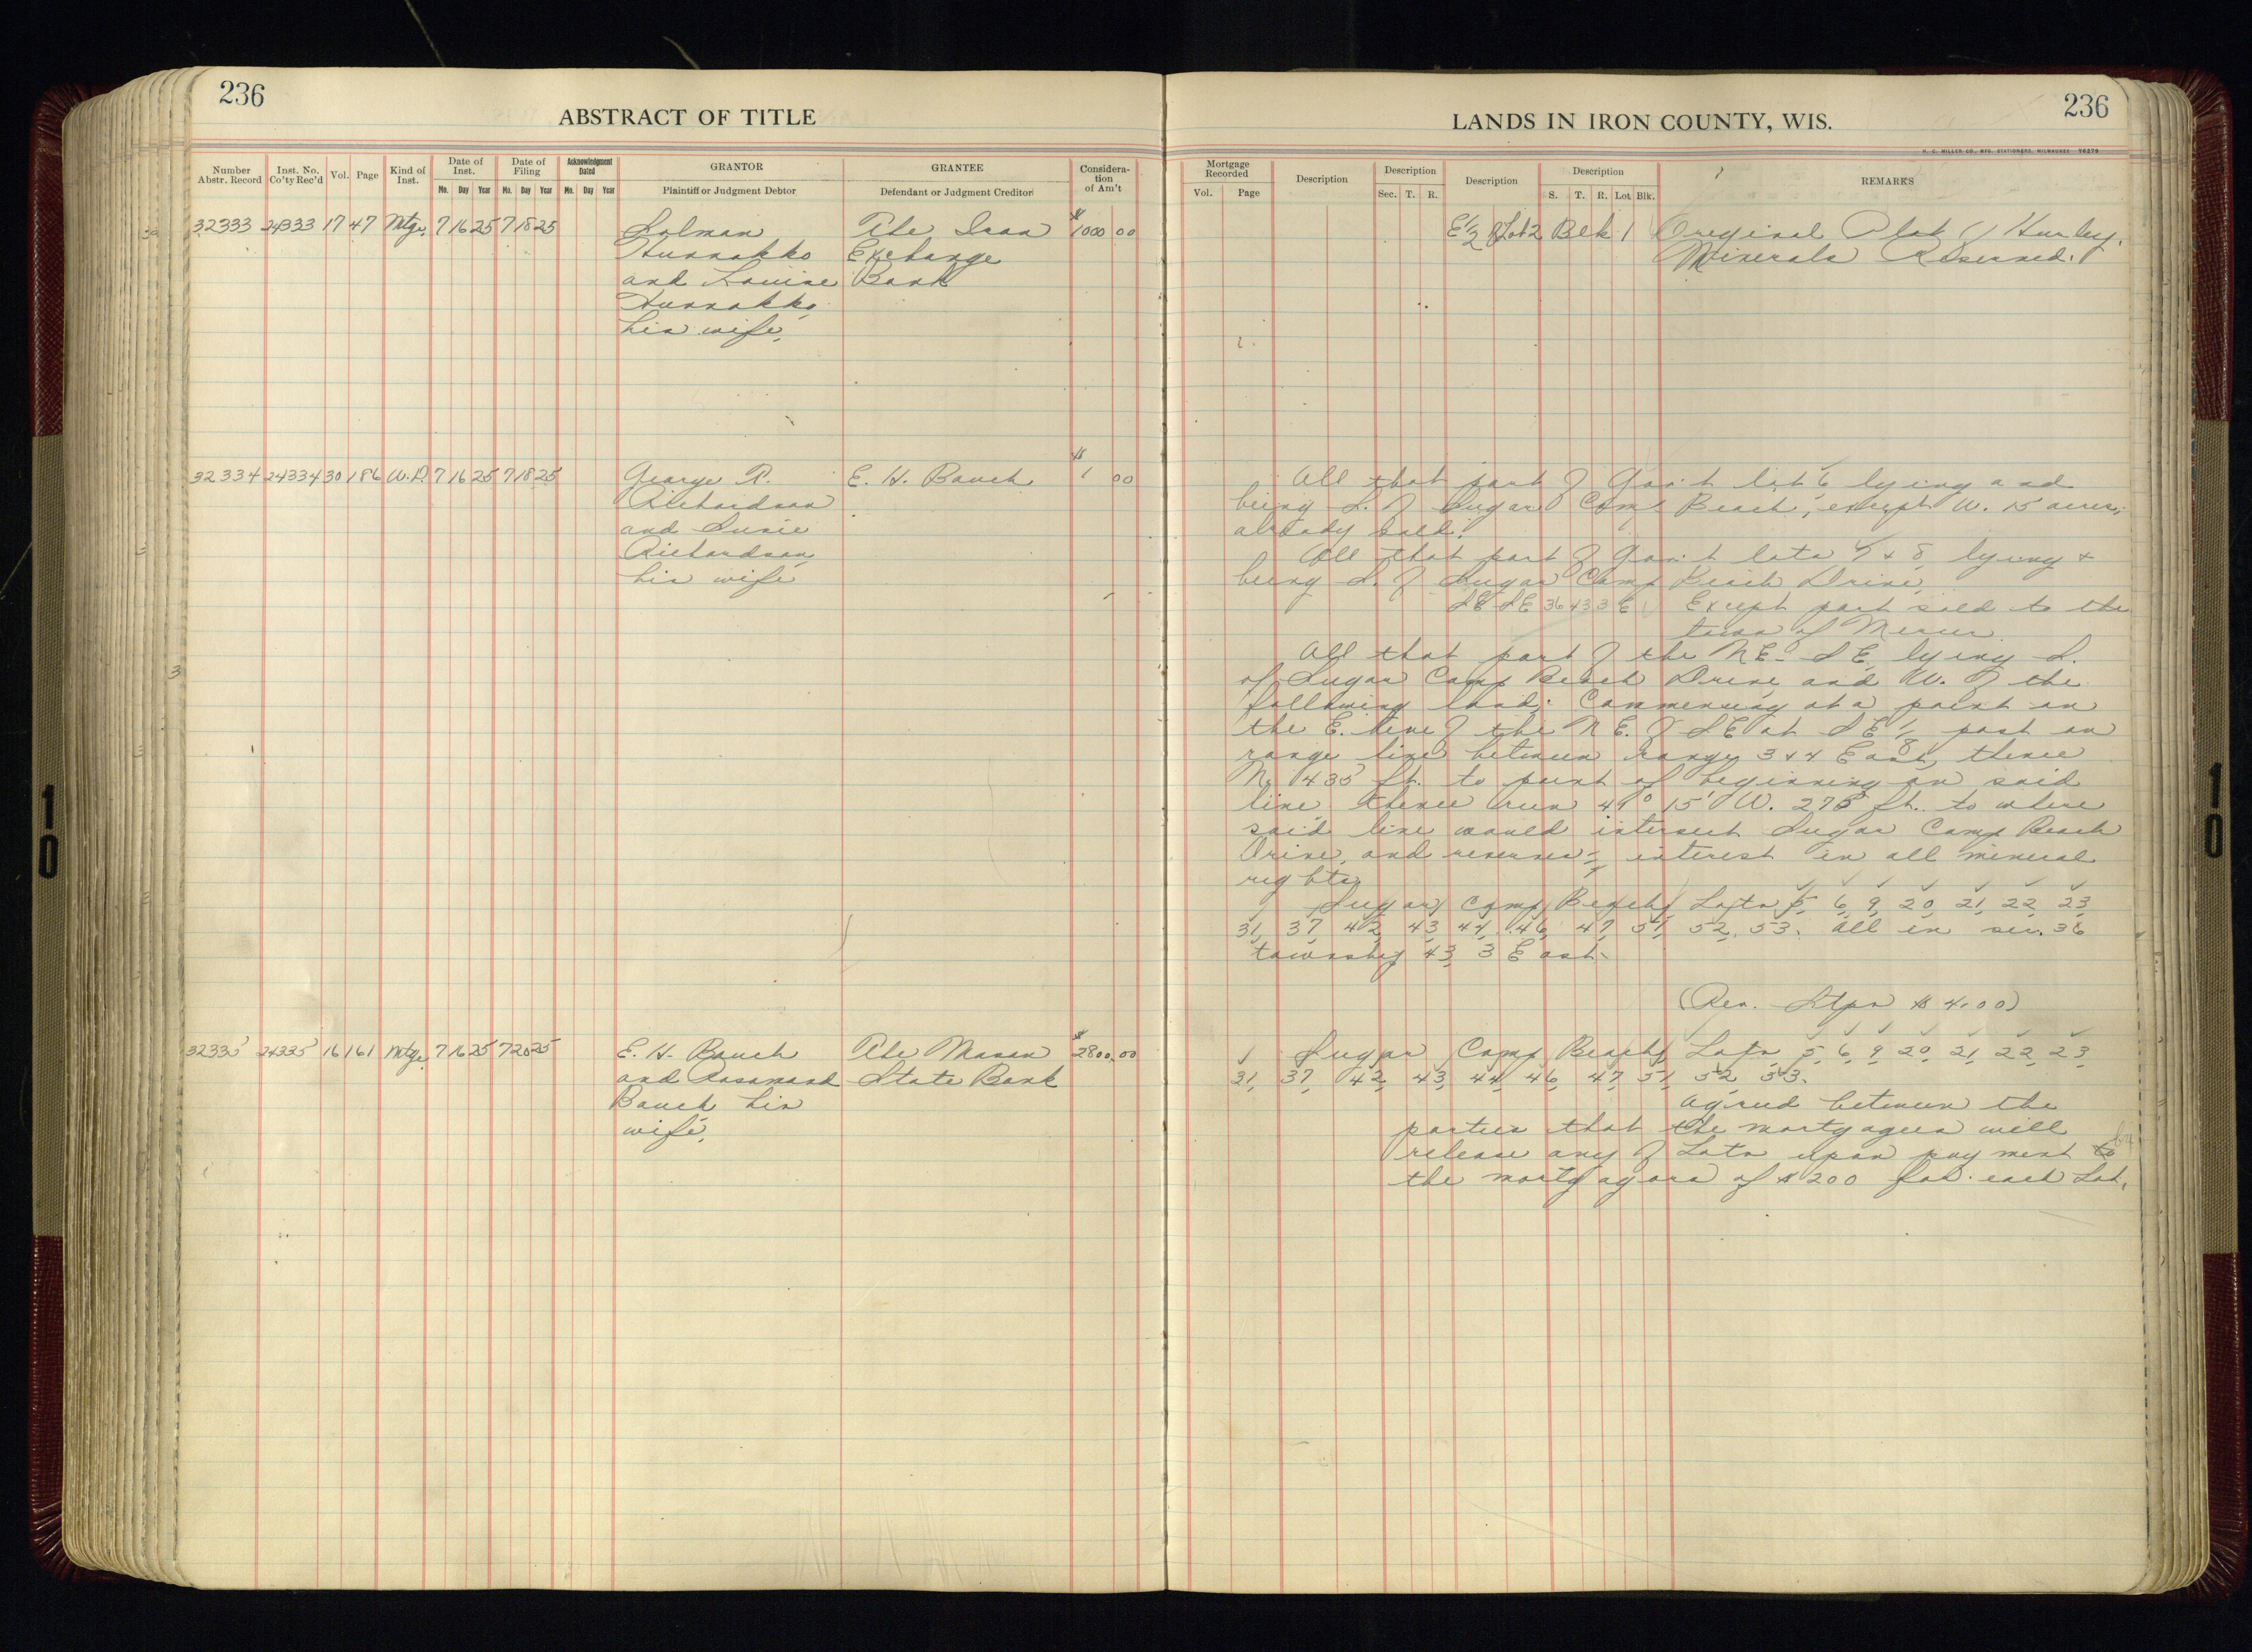 236
ABSTRACT OF TITLE
Number Abstr. Record | Inst. No. Co'ty Rec'd | Vol. | Page | Kind of Inst. | Date of Inst. Mo. Day Year | Date of Filing Mo. Day Year | Acknowledgment Dated Mo. Day Year | GRANTOR Plaintiff or Judgment Debtor | GRANTEE Defendant or Judgment Creditor | Consideration of Am't
32333 24333 17 47 Mtge. 7 16 25 7 18 25 Solman The Iron $1000 00
Hunnakko Exchange
and Louise Bank
Hunnakko
his wife,
32334 24334 30 186 W.D. 7 16 25 7 18 25 George R. E. H. Bauch $1 00
Richardson
and Susie
Richardson
his wife
32335 24335 16 161 Mtge. 7 16 25 7 20 25 E. H. Bauch The Mason $2800.00
and Rosamand State Bank
Bauch his
wife,
LANDS IN IRON COUNTY, WIS.
236
H. C. MILLER CO., MFG. STATIONERS, MILWAUKEE Y6279
Mortgage Recorded Vol. Page | Description | Description Sec. T. R. | Description | Description S. T. R. Lot Blk. | REMARKS
E 1/2 of Lot 2 Blk 1 Original Plat of Hurley.
Minerals Reserved.
All that part of Gov't lot 6 lying and
being S. of Sugar Camp Beach, except W. 15 acres,
already sold.
All that part of Gov't lots 7 & 8 lying &
being S. of Sugar Camp Beach Drive,
SE SE 36 43 3 E Except part sold to the
town of Mercer
All that part of the NE-SE lying S.
of Sugar Camp Beach Drive and W. of the
following land: Commencing at a point on
the E. line of the N E. of SE at SE 1/8 post on
range line between range 3 & 4 East, thence
N. 435 ft. to point of beginning on said
line thence run 49° 15' W. 275 ft. to where
said line would intersect Sugar Camp Beach
Drive, and reserves interest in all mineral
rights
Sugar Camp Beach, Lots 5, 6, 9, 20, 21, 22, 23
31, 37, 42, 43, 44, 46, 47, 51, 52, 53. All in sec. 36
township 43, 3 East.
(Rev. Stps $4.00)
Sugar Camp Beach, Lots 5, 6, 9, 20, 21, 22, 23
31, 37, 42, 43, 44, 46, 47, 51, 52, 53.
agreed between the
parties that the mortgagees will
release any of Lots upon payment by
the mortgagors of $200 for each Lot.
10
10